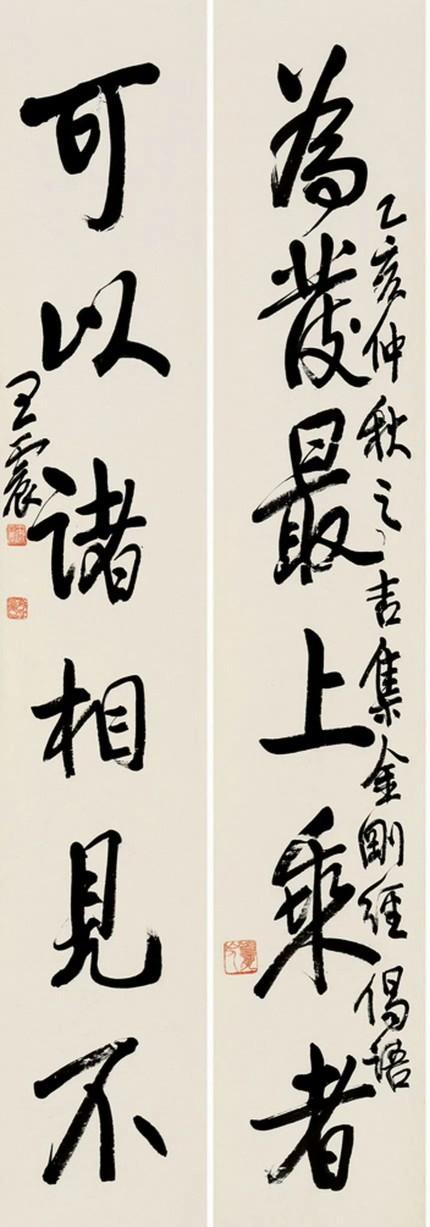 乙亥仲秋之吉集金剛經偈語
為發最上乘者
可以諸相見不
王震